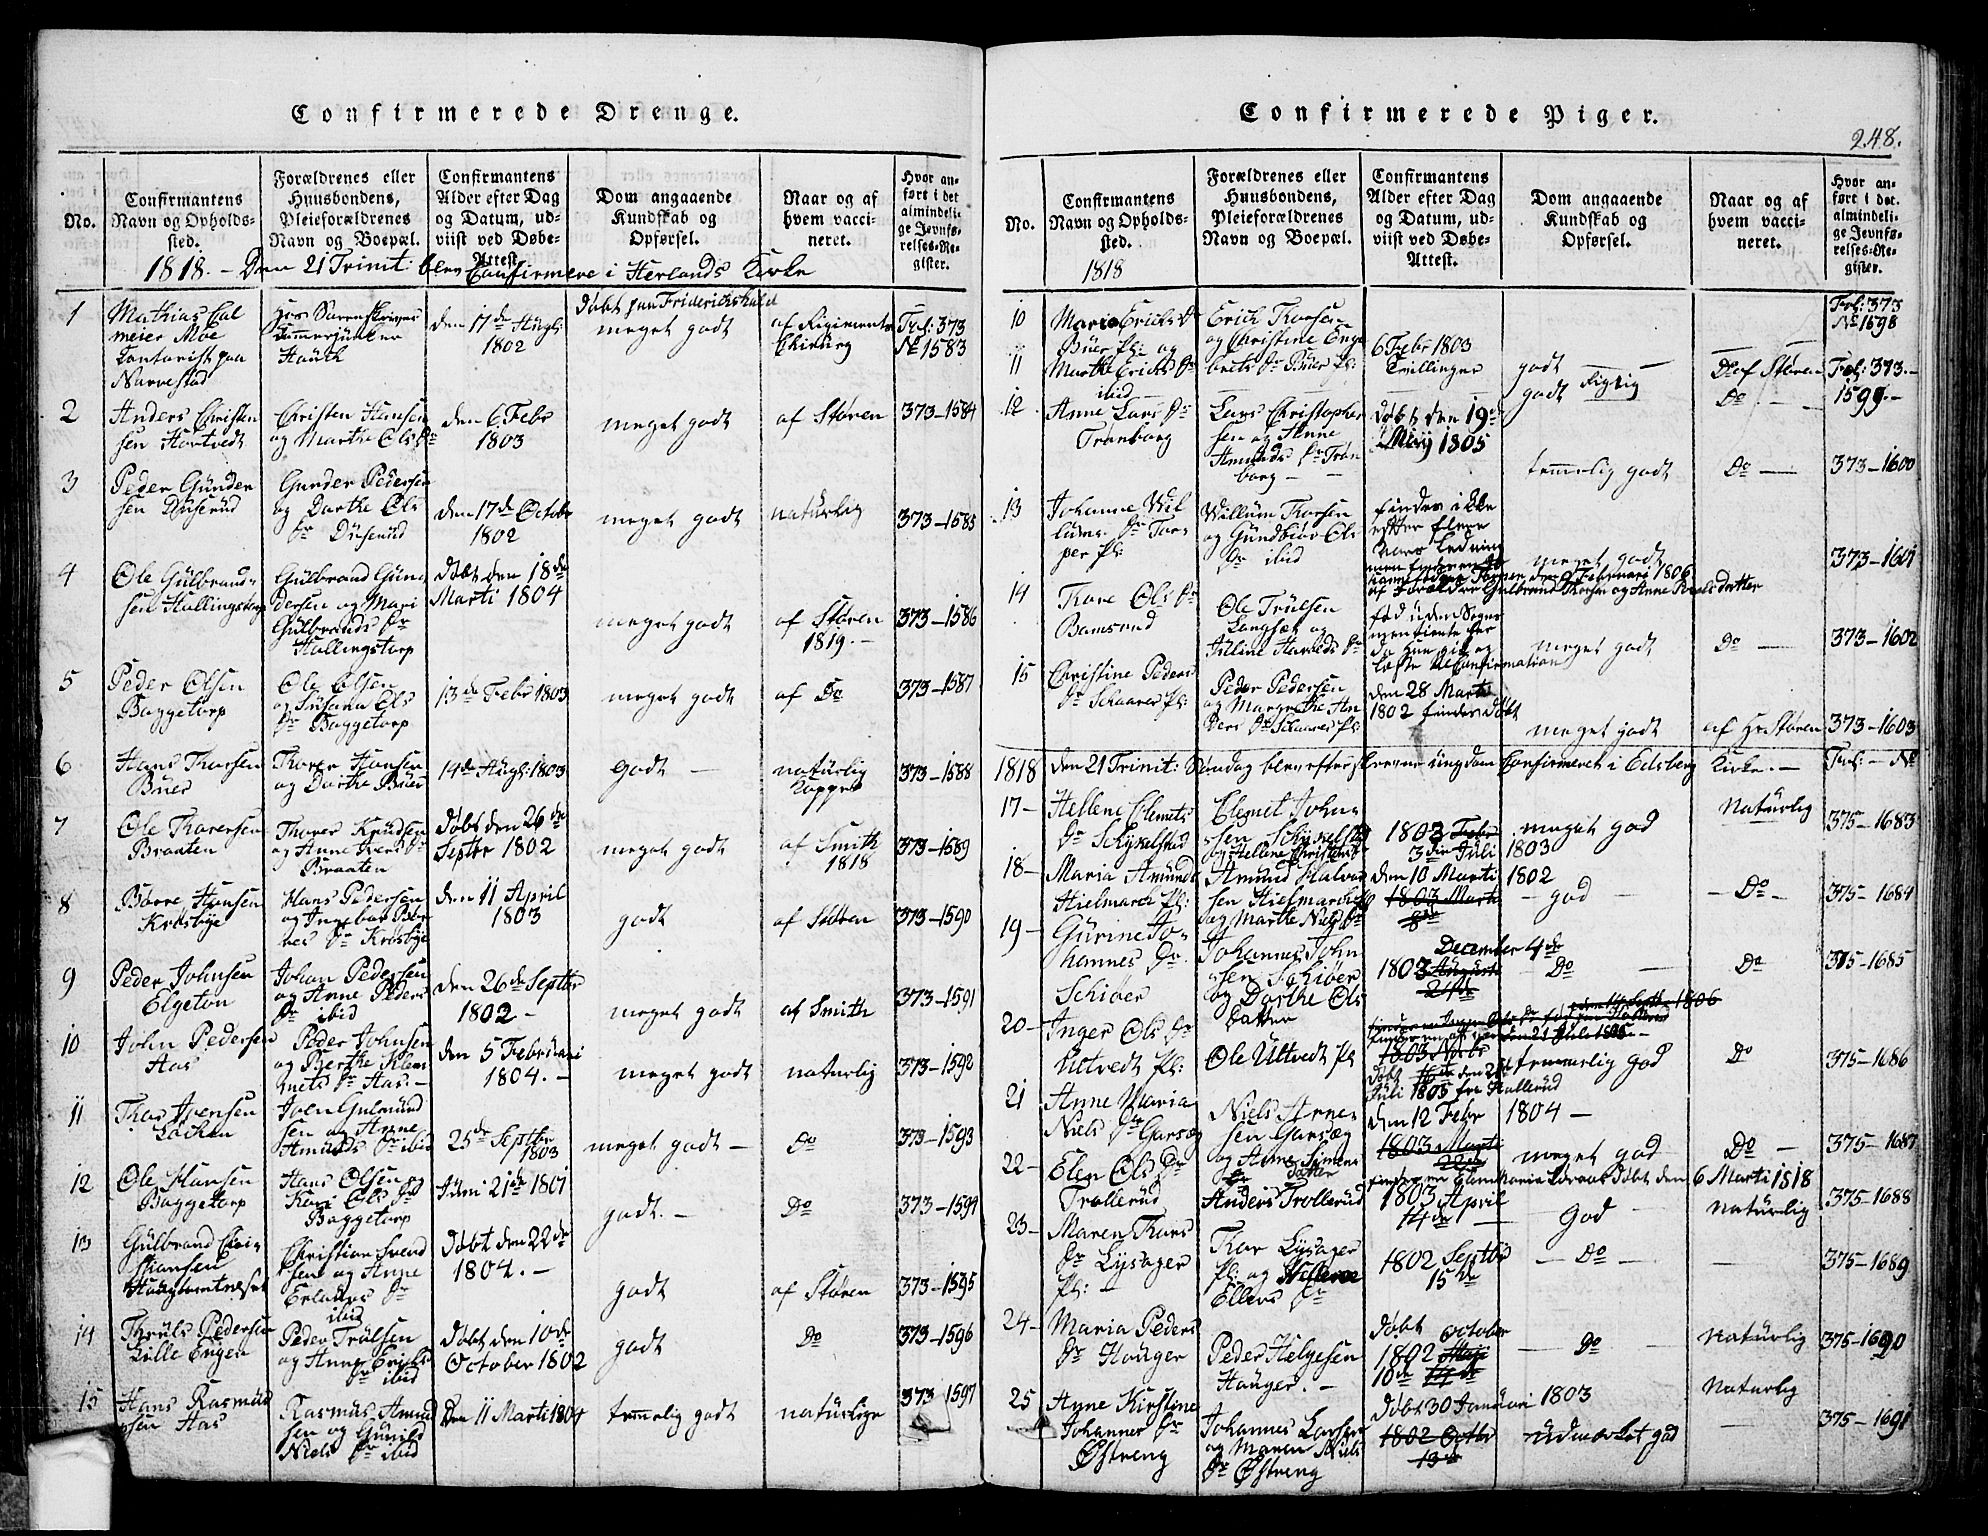 Confirmerede Drenge.
No.
Confirmantens
Navn og Opholds-
sted.
Forældrenes eller
Huusbondens,
Pleieforældrenes
Navn og Boepæl.
Confirmantens
Alder efter Dag
og Datum, ud-
viist ved Døbe-
Attest.
Dom angaaende
Kundskab og
Opførsel.
Naar og af
hvem vacci-
neret.
Hvor an-
ført i det
almindeli-
ge Jevnfø-
relses-Re-
gister.
1818. - Den 21 Trinit: blev Confirmere i Herlands Kirke
1
Mathias Cal
meier Moe
Contorist paa
Narvestad
hos Sorenskriver
Kammerjunker
Hauth
den 17de Augs:
1802
Døbt paa Friderichshald
meget godt
af Regiments
Chirurg
Fol: 373
No 1583
2
Anders Christen
sen Hortvedt
Christen Hansen
og Marthe Ols Dr
den 6 Febr
1803
meget godt
af Støren
373-1584
3
Peder Gunder
sen Düserüd
Gunder Pedersen
og Dorthe Ols
Dr Düserüd
den 17de Octobr
1802
meget godt
naturlig
373-1585
4
Ole Gülbrand-
sen Hallingstorp
Gülbrand Gun
dersen og Mari
Gülbrands Dr
Hallingstorp
Døbt den 18de
Marti 1804
meget godt
af Støren
1819.-
373-1586
5
Peder Olsen
Baggetorp
Ole Olsen
og Susana Ols
Dr Baggetorp
13de Febr 1803
meget godt
af Do
373-1587
6
Hans Thorsen
Büer
Thorer Hansen
og Dorthe Büer
14de Augs: 1803
Godt -
naturlig
Kopper
373-1588
7
Ole Thorersen
Braaten
Thorer Knudsen
og Anne Ivers Dr
Braaten
Døbt den 26de
Septbr 1802
meget godt
af Smith
1818
373-1589
8
Børre Hansen
Krosbye
Hans Pedersen
og Ingebor Bør
res Dr Krosbye
den 11 April
1803
godt
af Støren
373-1590
9
Peder Johnsen
Elgeton
Johan Pedersen
og Anne Peders
Dr ibid
den 26de Septbr
1802 -
meget godt
af Smith
373-1591
10
John Pedersen
Aas
Peder Johnsen
og Berthe Klem
mets Dr Aas.-
den 5 Februari
1804.-
meget godt
naturlig
373-1592
11
Thor Joensen
Løcken
Joen Gulmünd
sen og Anne
Amunds Dr ibid
25de Septbr
1803
meget godt -
Do
373-1593
12
Ole Hansen
Baggetorp
Hans Olsen
Kari Ols Dr
Baggetorp
Juni 21de 1801
godt.-
Do
373-1594
13
Gülbrand Chri-
stiansen
Christian Svend
sen og Anne
Erlands Dr
ibid
Døbt den 22de
1804.-
godt
af Støren
373-1595
14
Thrüls Pedersen
Lille Engen
Peder Trülsen
og Anne Erichs
Dr ibid
Døbt den 10de
October 1802
godt
Do
373-1596
15
Hans Rasmüd
sen Aas
Rasmüs Amud
sen og Günild
Niels Dr ibid
Den 11 Marti 1804
temmelig godt
naturlige
373-1597
Confirmerede Piger.
248.
No.
Confirmantens
Navn og Opholds-
sted.
Forældrenes eller
Huusbondens,
Pleieforældrenes
Navn og Boepæl.
Confirmantens
Alder efter Dag
og Datum, ud-
viist ved Døbe-
Attest.
Dom angaaende
Kundskab og
Opførsel.
Naar og af
hvem vacci-
neret.
Hvor an-
ført i det
almindeli-
ge Jevnfø-
relses-Re-
gister.
1818
10
Maria Erichs Dr
Büer Pl: og
11
Marthe Erichs Dr
ibid
Erich Thorsen
og Christine Enge
brets Dr Büer Pl:
6 Febr 1803
Tvillinger
godt
godt
Do af Støren
Do
Fol: 373
No 1598
Fol: 373.-
1599.-
12
Anne Lars Dr
Trønborg
Lars Christopher
sen og Anne
Amunds Dr Trøn
borg -
Døbt den 19de
Maij 1805
temmelig godt
Do -
373-1600
13
Johanne Wil
lums Dr Tors
per Pl:
Willum Thorsen
og Gundbiør Ols
Dr ibid
findes ikke
efter flere
Aars Ledning
men
meget godt
373-1601
af Forældre Gulbrand Thorsen og Anne Povelsdatter
14
Thore Ols Dr
Bamsrud
Ole Trülsen
Langset og
Harolds Dr
fød uden Sogne
mentionte her
da hun gik og
læste til Confirmation
meget godt
Do -
373-1602
15
Christine Peders
Dr Schaares Pl:
Peder Pedersen
og Margrethe An
ders Dr Schaares Pl:
den 28 Marti
1802 findes døbt
meget godt
af Hr Støren
373-1603
1818 den 21 Trinit: Søndag blev efterskrevne ungdom Confirmeret i Edsberg Kirke.-
Fol: - No
17-
Hellene Clemets
Dr Schjelstad
Clemet John-
sen
og Hellene Christens
1803 Febr
3die Juli 1803
meget god
Naturlig
375-1683
18-
Maria Amünds
Hielmarck Pl:
Amünd Halvor
sen Hielmarck
og Marthe Niels Dr
den 10 Marti 1802
1803 Marti
8de
- god -
- Do -
375-1684
19-
Gürine Jo-
hannes Dr
Schiøer
Johannes John
sen Schiøer
og Dorthe Ols
datter
December 4de
1803 August
21de
- Do -
Do
375-1685
20-
Inger Ols Dr
Ultvedt Pl:
Ole Ultvedt Pl
1803 Novbr
Døbt den 21
Juli 1805 fra Hallerud
temmelig god
Do
375-1686
21
Anne Maria
Niels Dr Garsæg
Niels Arne-
sen Garsæg
og Anne Simens
datter
den 12 Febr 1804 -
1803 Marti
22de
meget god
Do -
375-1687
22-
Elen Ols Dr
Trollerüd
Anders Trollerüd
Døbt den 6 Marti 1818
1803 April
14de -
God
Naturlig
375-1688
23-
Maren Thors
Dr Lysager
Pl: -
Thor Lysager
Pl: og
Ellers Dr
1802 Septbr
15de
- Do -
-
375-1689
24-
Maria Peders
Dr Haüger
Peder Helgesen
Haüger.-
Døbt
October
1802 Maji
10de 14de
- Do -
Naturlig
375-1690
25
Anne Kirstine
Johannes Dr
Østreng
Johannes Larsen
og Maren Niels
Dr Østreng
Døbt 30 Januari 1803
1802 Octbr
13de
udmerket god
Naturlig
-
375-1691